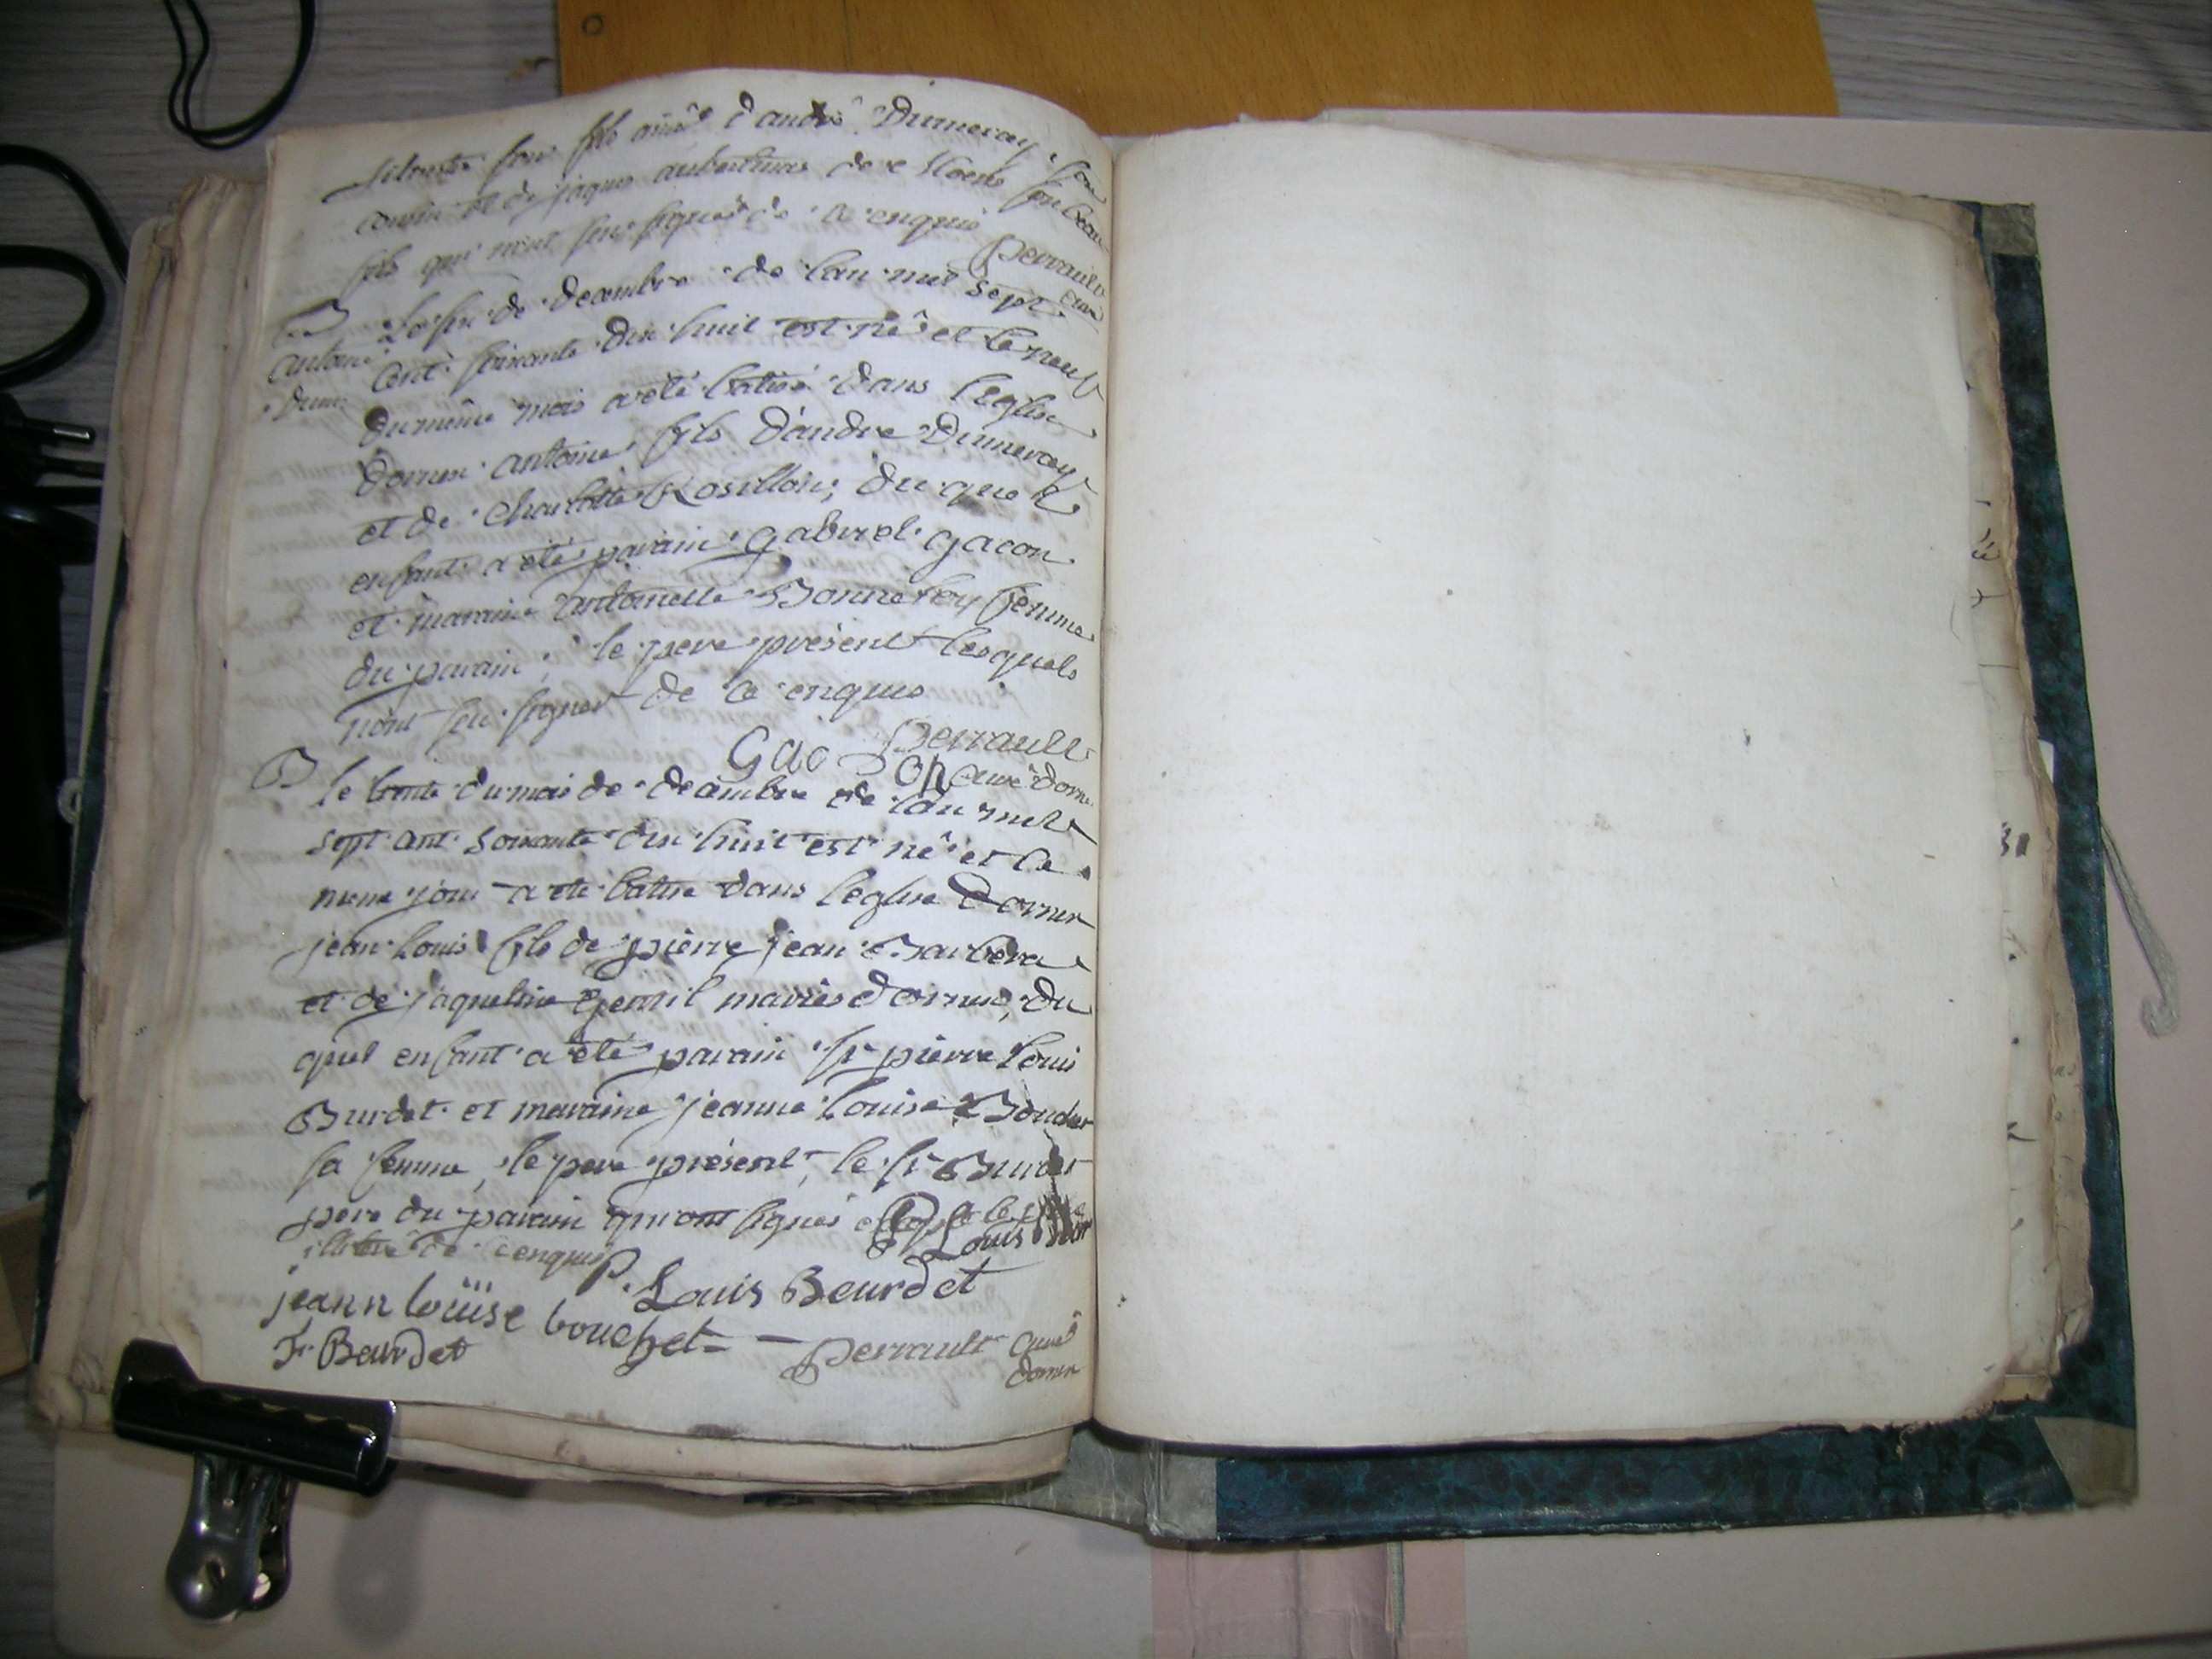 fils ainé d'andré Dumeray son
cousin et de jaques de st son beau
fils qui n'ont seu signer de ce enquis
perrault
curé
B
antoine
Dum
Le six de decembre de l'an mil sept
cent soixante dix huit est né et le neuf
du même mois a eté batisé dans l'eglise
dornex antoine fils d'andre Dumeray
et de charlotte Rosillon; du quel
enfant a eté parain gabriel gacon
et maraine antoinette Bonnefoy femme
du parain; le pere présent lesquels
n'ont seu signer de ce enquis
perrault
Gacon
curé dornex
B
le trente du mois de decembre de l'an mil
sept cent soixante dix huit est né et le
meme jour a eté batise dans l'eglise dornex
jean louis fils de pierre jean Barbera
et de jaqueline gentil mariés dornex, du
quel enfant a été parain sr pierre louis
Burdet et maraine jeanne louise Bouchet
sa femme, le pere présent, le sr Burdet
pere du parain qui ont signés
illitéré de ce enquis
Louis
P. Louis Beurdet
jeann louise bouchet
fr Beurdet
perrault curé
dornex